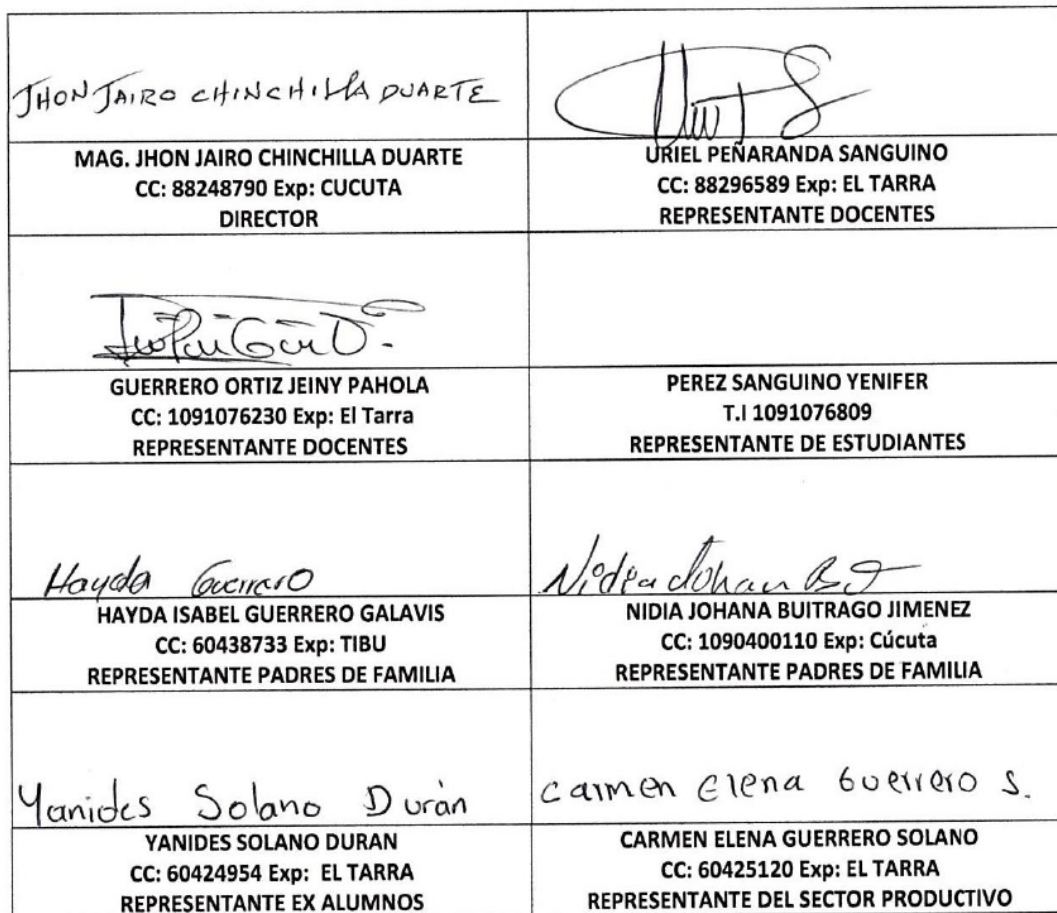 JHON JAIRO CHINCHILLA DUARTE
MAG. JHON JAIRO CHINCHILLA DUARTE
CC: 88248790 Exp: CUCUTA
DIRECTOR
URIEL PEÑARANDA SANGUINO
CC: 88296589 Exp: EL TARRA
REPRESENTANTE DOCENTES
GUERRERO ORTIZ JEINY PAHOLA
CC: 1091076230 Exp: El Tarra
REPRESENTANTE DOCENTES
PEREZ SANGUINO YENIFER
T.I 1091076809
REPRESENTANTE DE ESTUDIANTES
Hayda Guerrero
HAYDA ISABEL GUERRERO GALAVIS
CC: 60438733 Exp: TIBU
REPRESENTANTE PADRES DE FAMILIA
Nidia Johan
NIDIA JOHANA BUITRAGO JIMENEZ
CC: 1090400110 Exp: Cúcuta
REPRESENTANTE PADRES DE FAMILIA
Yanides Solano Durán
YANIDES SOLANO DURAN
CC: 60424954 Exp: EL TARRA
REPRESENTANTE EX ALUMNOS
Carmen Elena Guerrero S.
CARMEN ELENA GUERRERO SOLANO
CC: 60425120 Exp: EL TARRA
REPRESENTANTE DEL SECTOR PRODUCTIVO